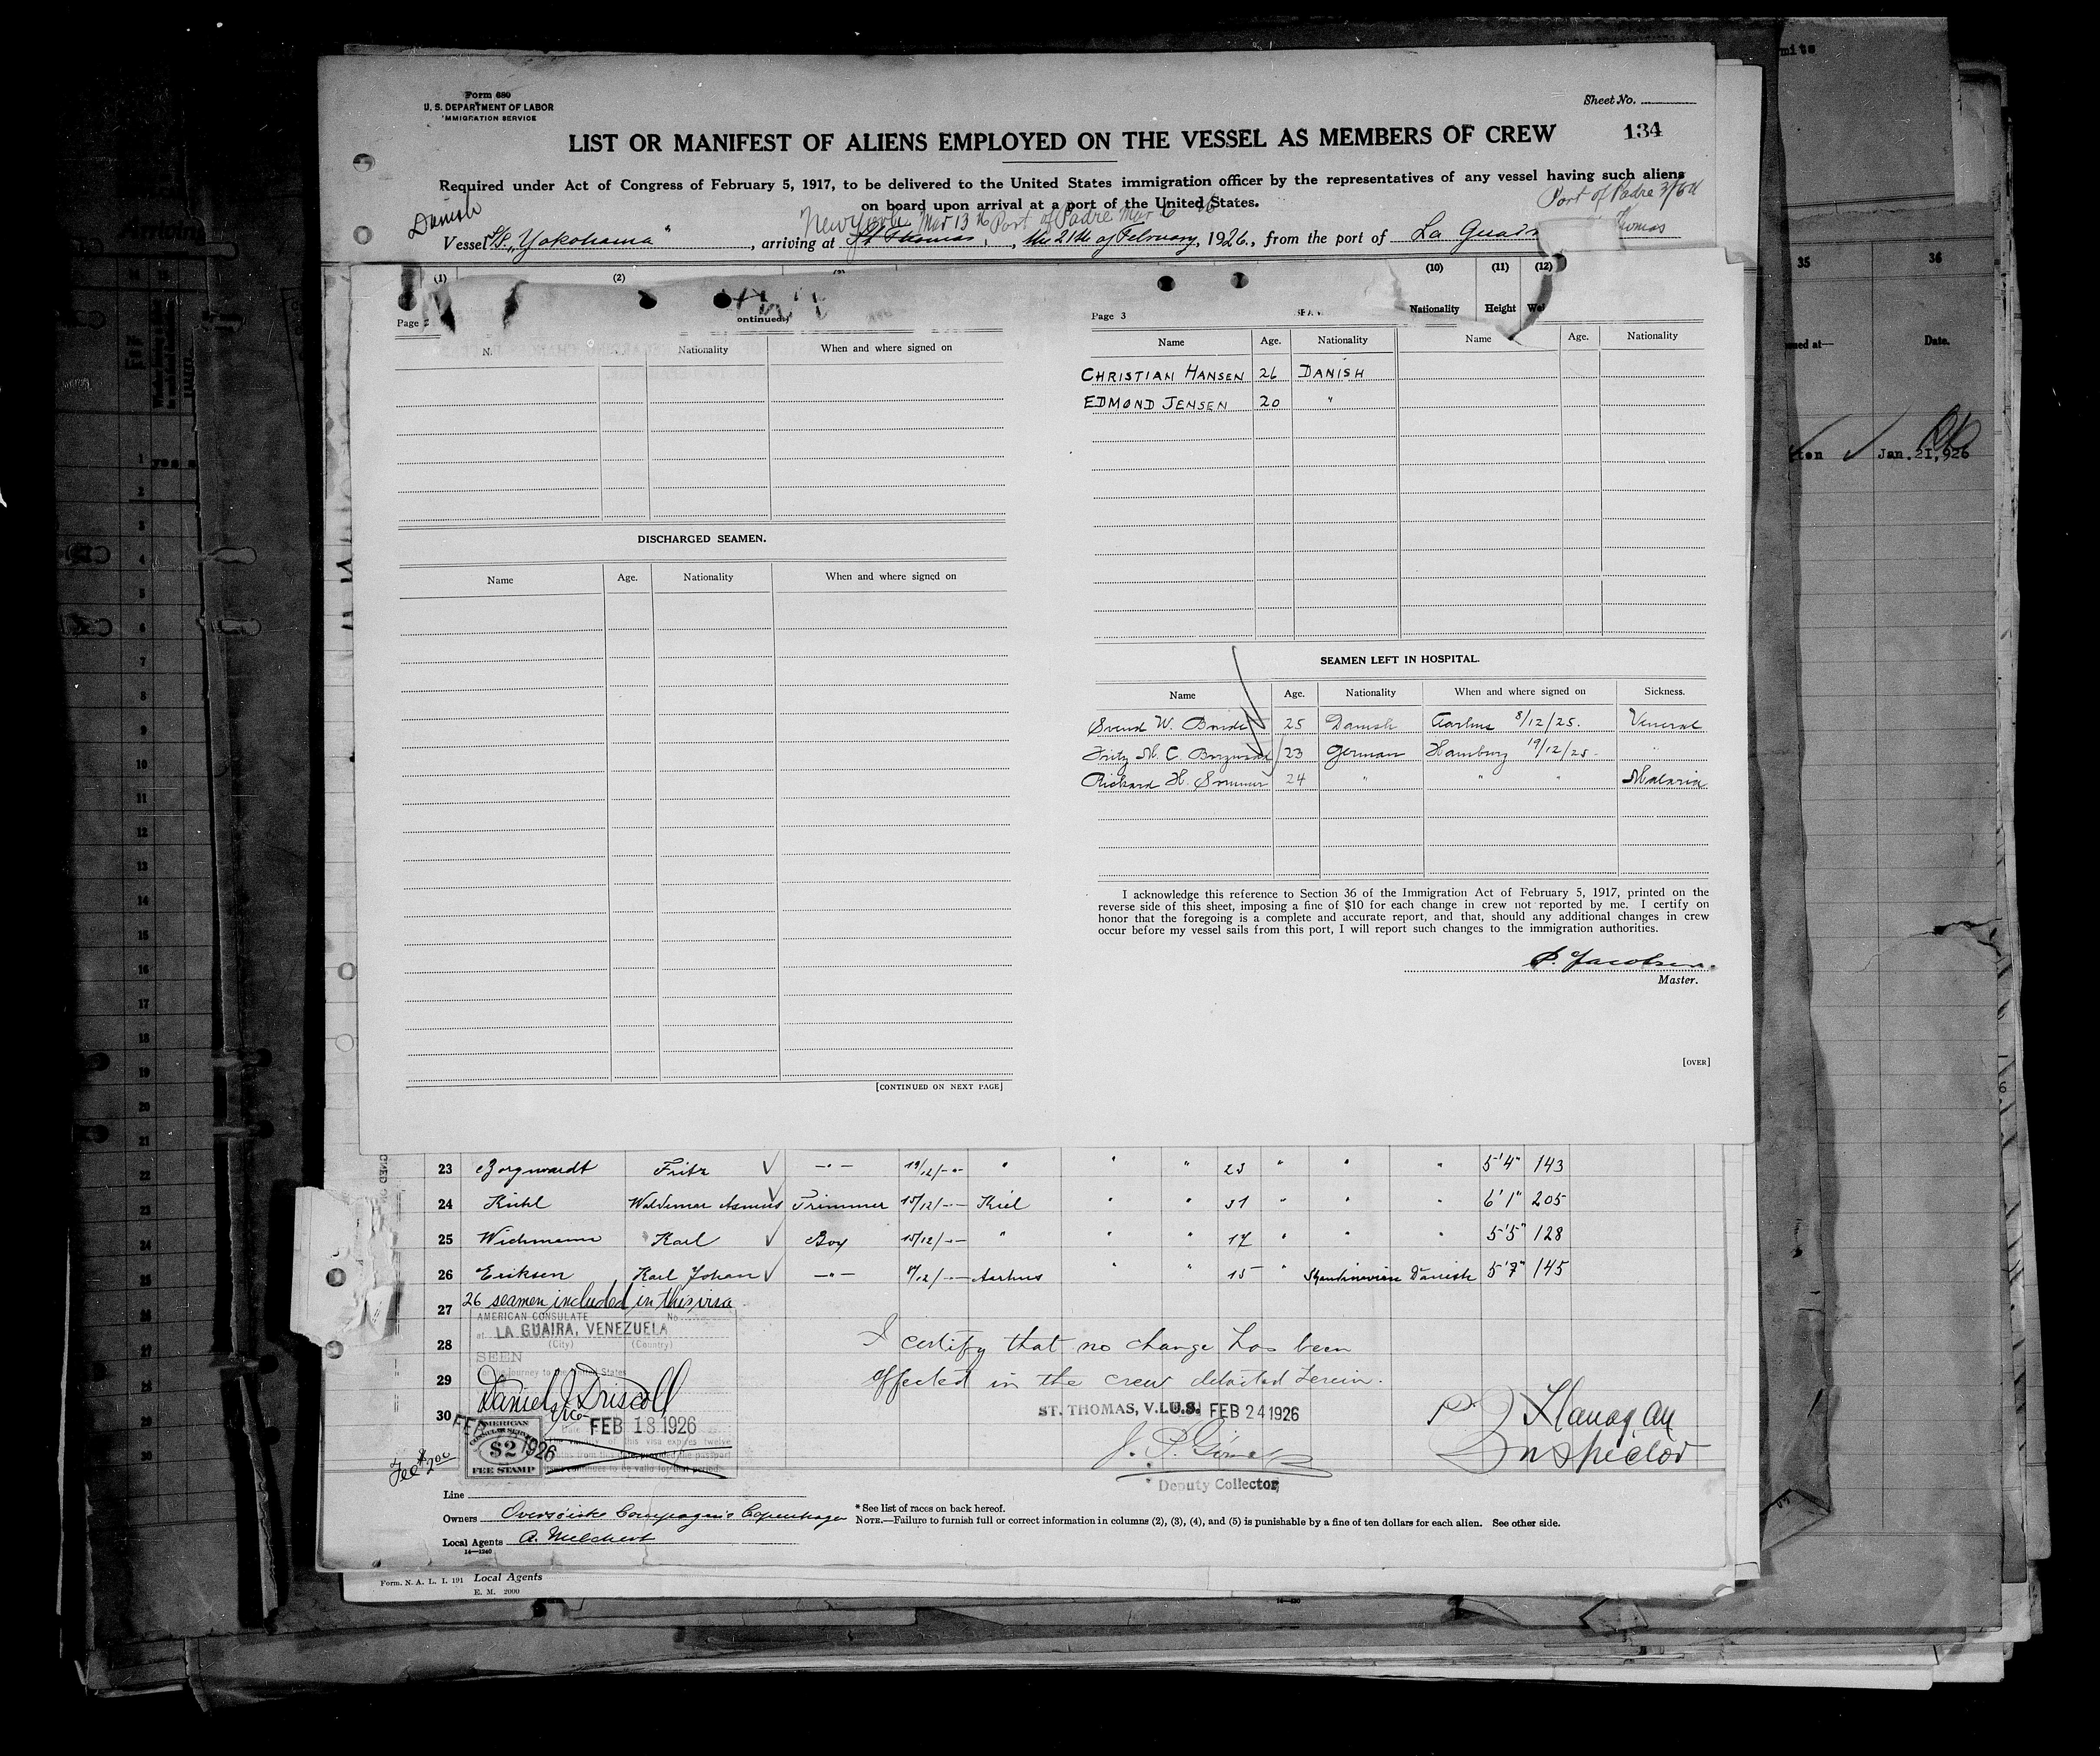 Form 680
U. S. DEPARTMENT OF LABOR
IMMIGRATION SERVICE
Sheet No.
LIST OR MANIFEST OF ALIENS EMPLOYED ON THE VESSEL AS MEMBERS OF CREW
134
Required under Act of Congress of February 5, 1917, to be delivered to the United States immigration officer by the representatives of any vessel having such aliens
on board upon arrival at a port of the United States.
Port of Padre
Danish
New York Mar 13 26 Port of Padre Mar 6 26
Thomas
Vessel S/S. „Yokohama", arriving at St Thomas, the 21th of February, 1926, from the port of La Guair
(1) (2) (10) (11) (12)
Nationality Height
Page 2 ontinued)
Nationality When and where signed on
DISCHARGED SEAMEN.
Name Age. Nationality When and where signed on
[CONTINUED ON NEXT PAGE]
Page 3
Name Age. Nationality Name Age. Nationality
CHRISTIAN HANSEN 26 DANISH
EDMOND JENSEN 20 "
SEAMEN LEFT IN HOSPITAL.
Name Age. Nationality When and where signed on Sickness.
Svend W. 25 Danish Aarhus 8/12/25. Veneral
Fritz M. C. 23 German Hamburg 19/12/25 "
Richard H. Sommer 24 " " " Malaria
I acknowledge this reference to Section 36 of the Immigration Act of February 5, 1917, printed on the
reverse side of this sheet, imposing a fine of $10 for each change in crew not reported by me. I certify on
honor that the foregoing is a complete and accurate report, and that, should any additional changes in crew
occur before my vessel sails from this port, I will report such changes to the immigration authorities.
P. Jacobsen.
Master.
[OVER]
23 Borgwardt Fritz —"— 19/12/-"- " " " 23 " " " 5'4" 143
24 Waldemar Asmus Trimmer 15/12/-"- Kiel " " 31 " " " 6'1" 205
25 Wichmann Karl Boy 15/12/-"- " " " 17 " " " 5'5" 128
26 Eriksen Karl Johan —"— 8/12/-"- Aarhus " " 15 " Skandinavian Danish 5'7" 145
27 26 seamen included in this visa
AMERICAN CONSULATE No.
at LA GUAIRA, VENEZUELA
(City) (Country)
28
SEEN
journey to the United States
29
Daniel J. Driscoll
Vice
30
Date FEB 18 1926
FEB 1926
AMERICAN
CONSULAR SERVICE
$2
FEE STAMP
Fee $2.00
The validity of this visa expires twelve
months from this date, provided the passport
continues to be valid for that period.
I certify that no change has been
effected in the crew detailed herein.
ST. THOMAS, V.I. U.S. FEB 24 1926
Deputy Collector
P J Flanagan
Inspector
Line
Owners Oversöiske Compagnie Copenhagen
Local Agents A. Melchert
14—1240
* See list of races on back hereof.
NOTE.—Failure to furnish full or correct information in columns (2), (3), (4), and (5) is punishable by a fine of ten dollars for each alien. See other side.
Form. N. A. L. I. 191 Local Agents
E. M. 2000
35 36
Date.
Jan.21,926